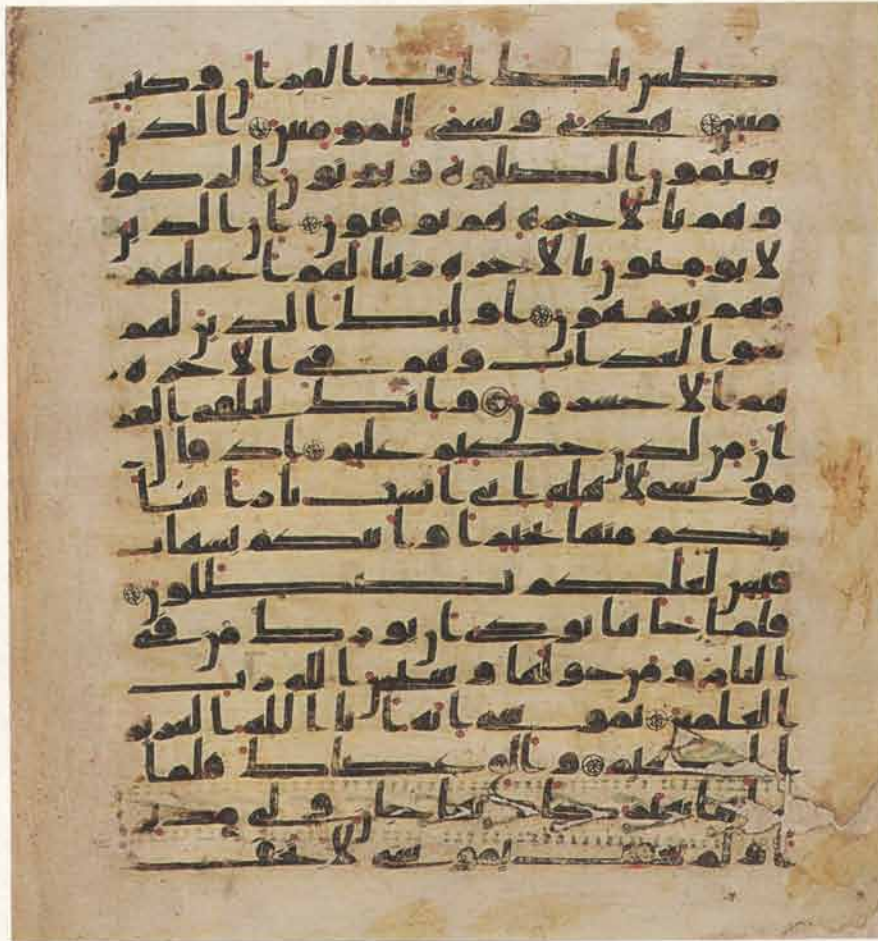 طس تلك ايت القران وكتب
مبين هدى وبشرى للمومنين الذين
يقيمون الصلوة ويوتون الزكوة
وهم بالاخرة هم يوقنون ان الذين
لا يومنون بالاخرة زينا لهم اعملهم
فهم يعمهون اوليك الذين لهم
سو العذاب وهم في الاخرة
هم الاخسرون وانك لتلقى القر
ان من لدن حكيم عليم اذ قال
موسى لاهله اني انست نارا سا
تيكم منها بخبر او اتيكم بشهاب
قبس لعلكم تصطلون
فلما جاها نودي ان بورك من في
النار ومن حولها وسبحن الله رب
العلمين يموسى انه انا الله العزيز
الحكيم والق عصاك فلما
تهتز كانها جان ولى مدبر
ا ولم يعقب يموسى لا تخف